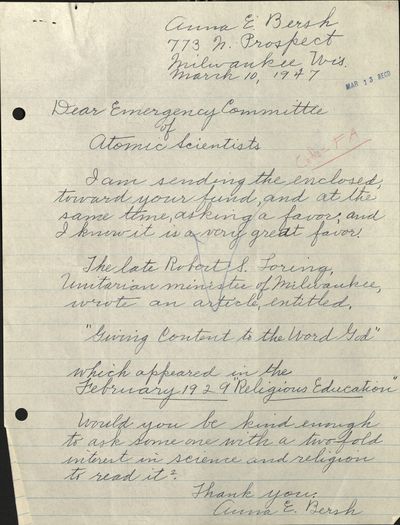 Anna E. Bersh
773 N. Prospect
Milwaukee Wis.
March 10, 1947
MAR 13 RECD
Dear Emergency Committee
of
Atomic Scientists
I am sending the enclosed,
toward your fund, and at the
same time, asking a favor, and
I know it is a very great favor.
The late Robert S. Loring,
Unitarian minister of Milwaukee,
wrote an article, entitled,
"Giving Content to the Word God"
which appeared in the
February 1929 "Religious Education"
Would you be kind enough
to ask some one with a two-fold
interest in science and religion
to read it?
Thank you.
Anna E. Bersh